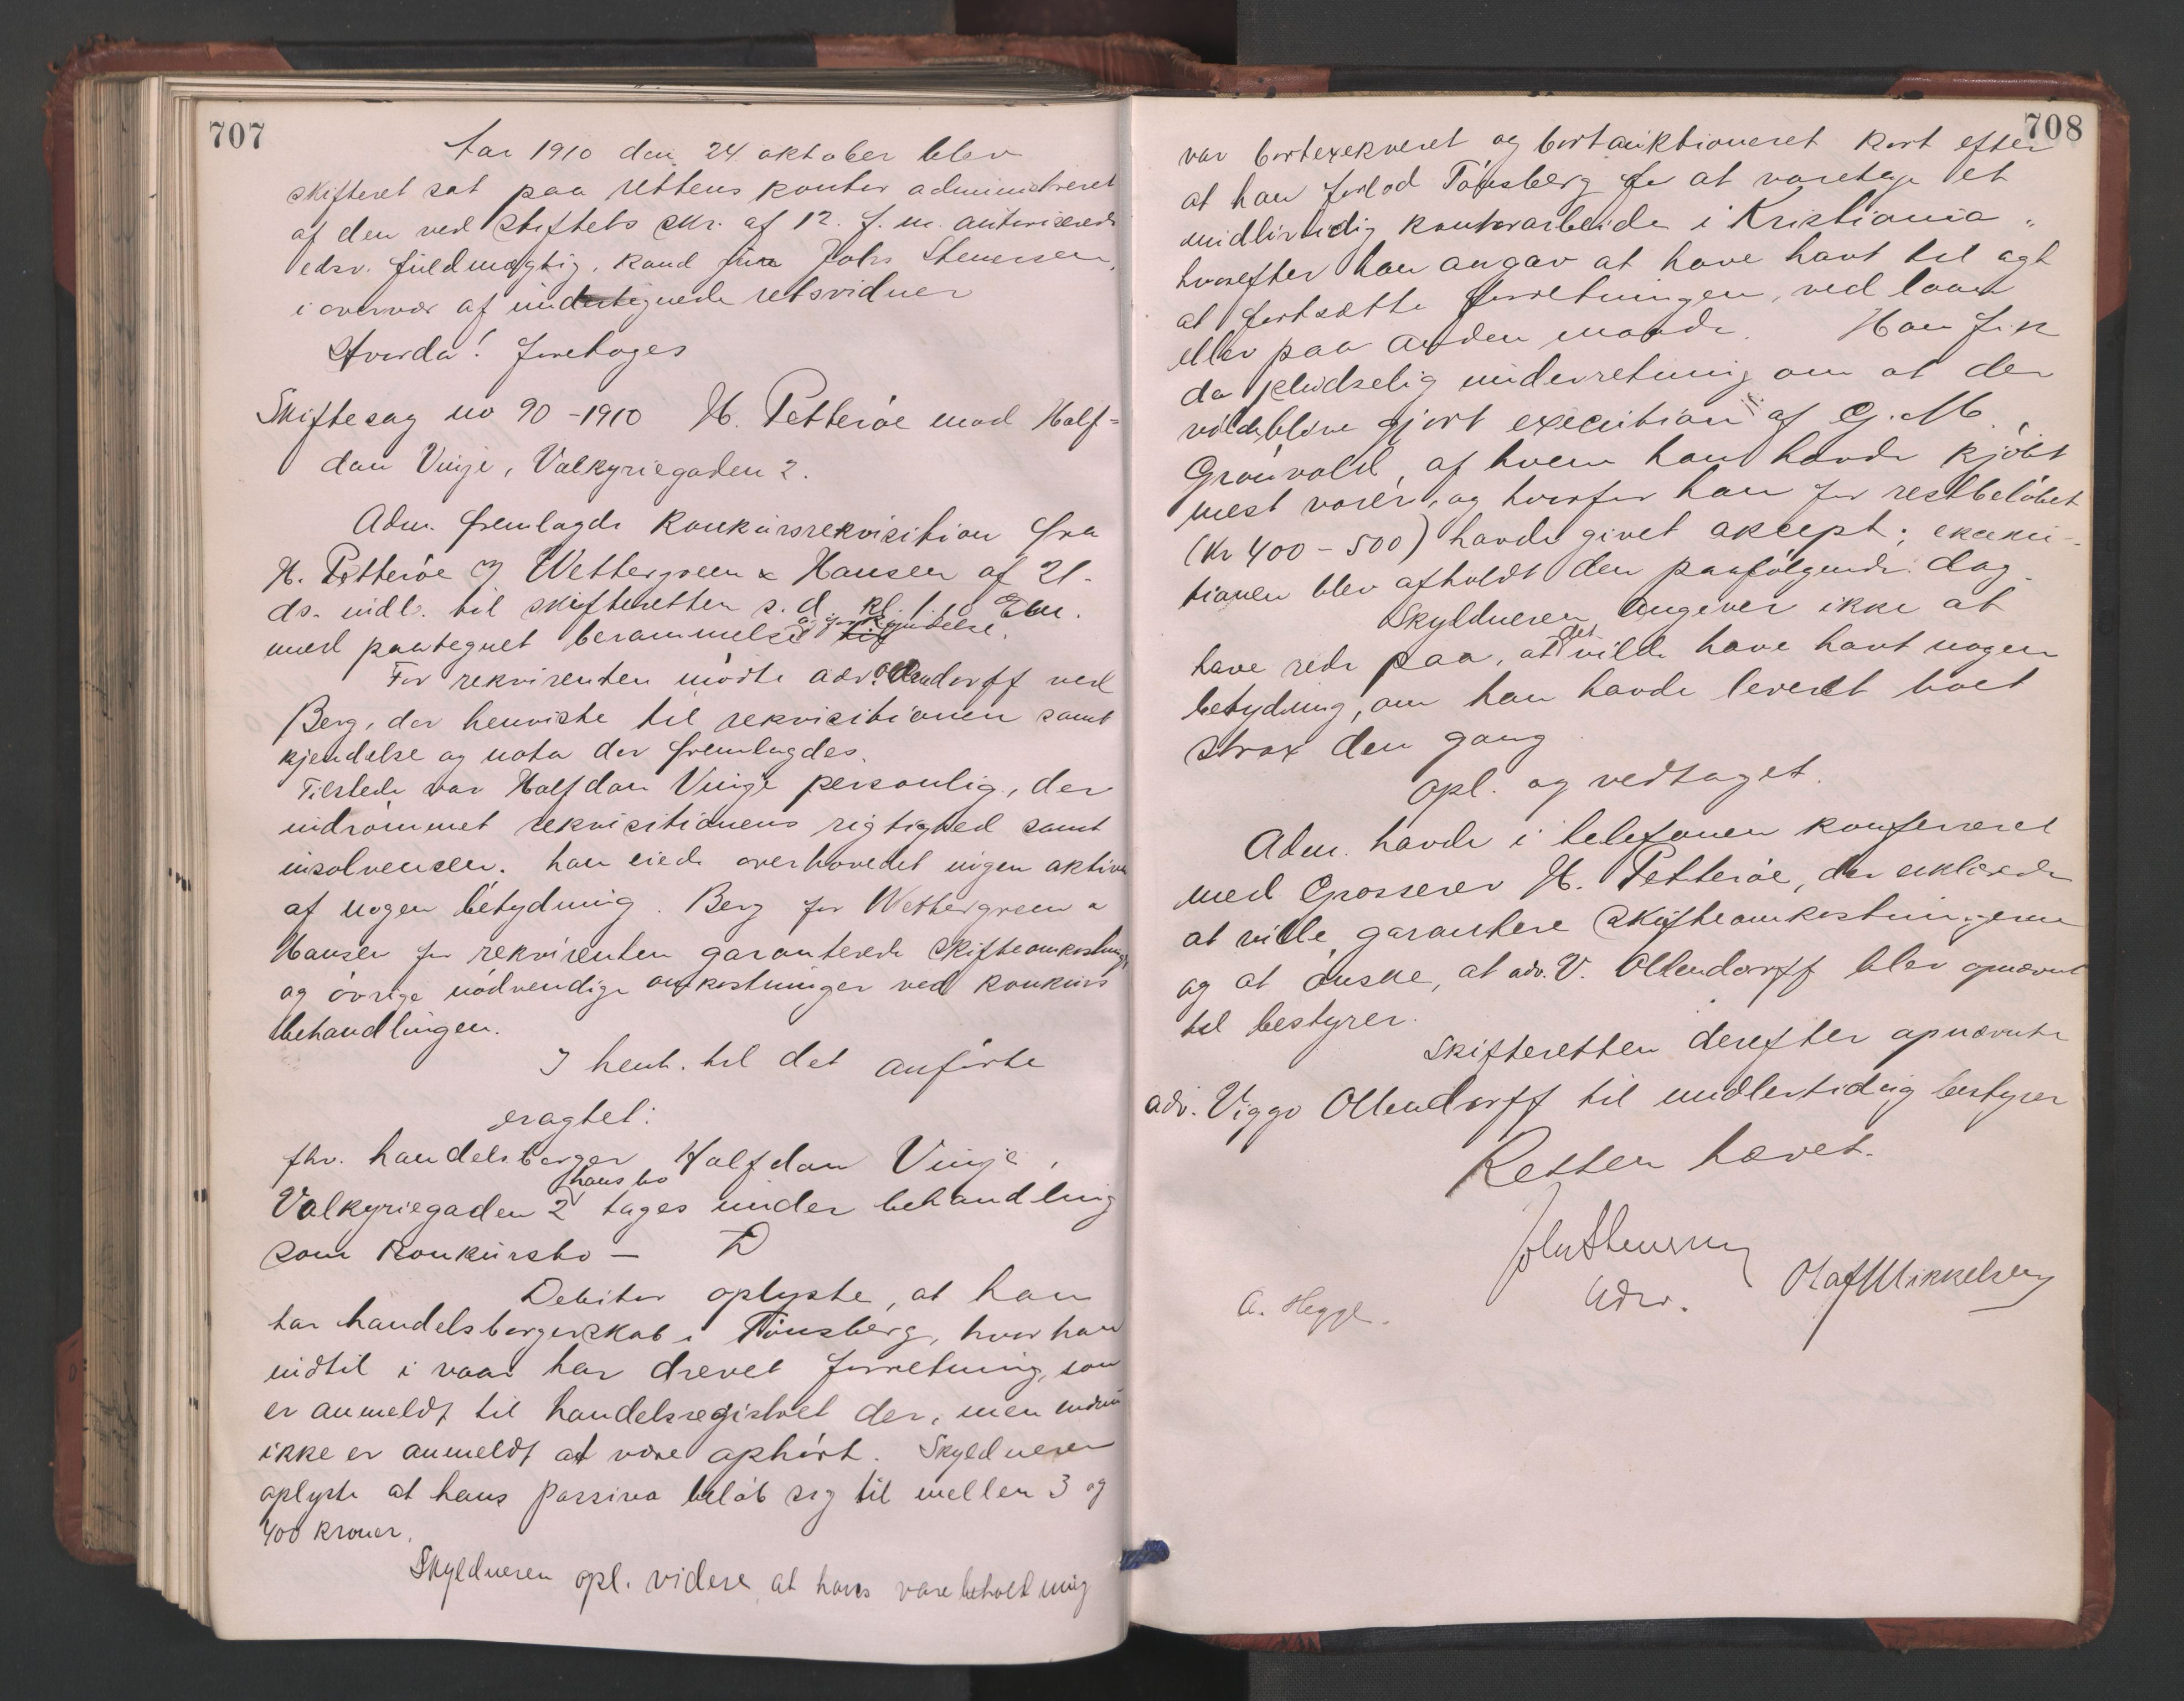 707
Aar 1910 den 24 oktober blev
skifteret sat paa rettens kontor administreret
af den ved Stiftets skr. af 12. f. m. autoriserede
edsv. fuldmægtig, kand jur Johs Stenersen,
i overvær af undertegnede retsvidner
Hvorda! foretoges
Skiftesag no 90 - 1910 H. Petterøe mod Half=
dan Vinje, Valkyriegaden 2.
Adm. fremlagde konkursrekvisition fra
H. Petterøe og Wettergreen & Hansen af 21.
ds. indl. til skifteretten s. d. kl. 1.10 Em.
med paategnet berammelse og forkyndelse.
For rekvirenten mødte adv. Ollendorff ved
Berg, der henviste til rekvisitionen samt
kjendelse og nota der fremlagdes.
Tilstede var Halfdan Vinje personlig, der
indrømmet rekvisitionens rigtighed samt
insolvensen. han eiede overhovedet ingen aktiva
af nogen betydning. Berg for Wettergreen &
Hansen for rekvirenten garanterede skifteomkostninger
og øvrige nødvendige omkostninger ved konkurs
behandlingen.
I henh. til det anførte
eragtet:
fhv. handelsborger Halfdan Vinje,
Valkyriegaden 2 hans bo tages under behandling
som konkursbo –
Debitor oplyste, at han
har handelsborgerskab i Tønsberg, hvor han
indtil i vaar har drevet forretning, som
er anmeldt til handelsregistret der, men endnu
ikke er anmeldt at være ophørt. Skyldneren
oplyste at hans passiva beløb sig til mellem 3 og
400 kroner.
Skyldneren opl. videre at hans varebeholdning
708
var bortexekveret og bortauktioneret kort efter
at han forlod Tønsberg for at varetage et
midlertidig kontorarbeide i Kristiania,
hvorefter han angav at have havt til agt
at fortsætte forretningen, ved laan
eller paa anden maade. Han fik
da pludselig underretning om at der
vilde blive gjort execution af G. M.
Grønvold, af hvem han havde kjøbt
mest varer, og hvorfor han for restbeløbet
(Kr 400 - 500) havde givet aksept; exeku-
tionen blev afholdt den paafølgende dag.
Skyldneren angiver ikke at
have rede paa, at det vilde have havt nogen
betydning, om han havde leveret boet
strax den gang
Opl. og vedtaget.
Adm. havde i telefonen konfereret
med Grosserer H. Petterøe, der erklærede
at ville garantere skifteomkostningerne
og at ønske, at adv. V. Ollendorff blev opnævnt
til bestyrer.
Skifteretten derefter opnævnte
adv. Viggo Ollendorff til midlertidig bestyrer
Retten hævet.
Johs Stenersen
edsv.
Olaf Mikkelsen
A. Hegge.